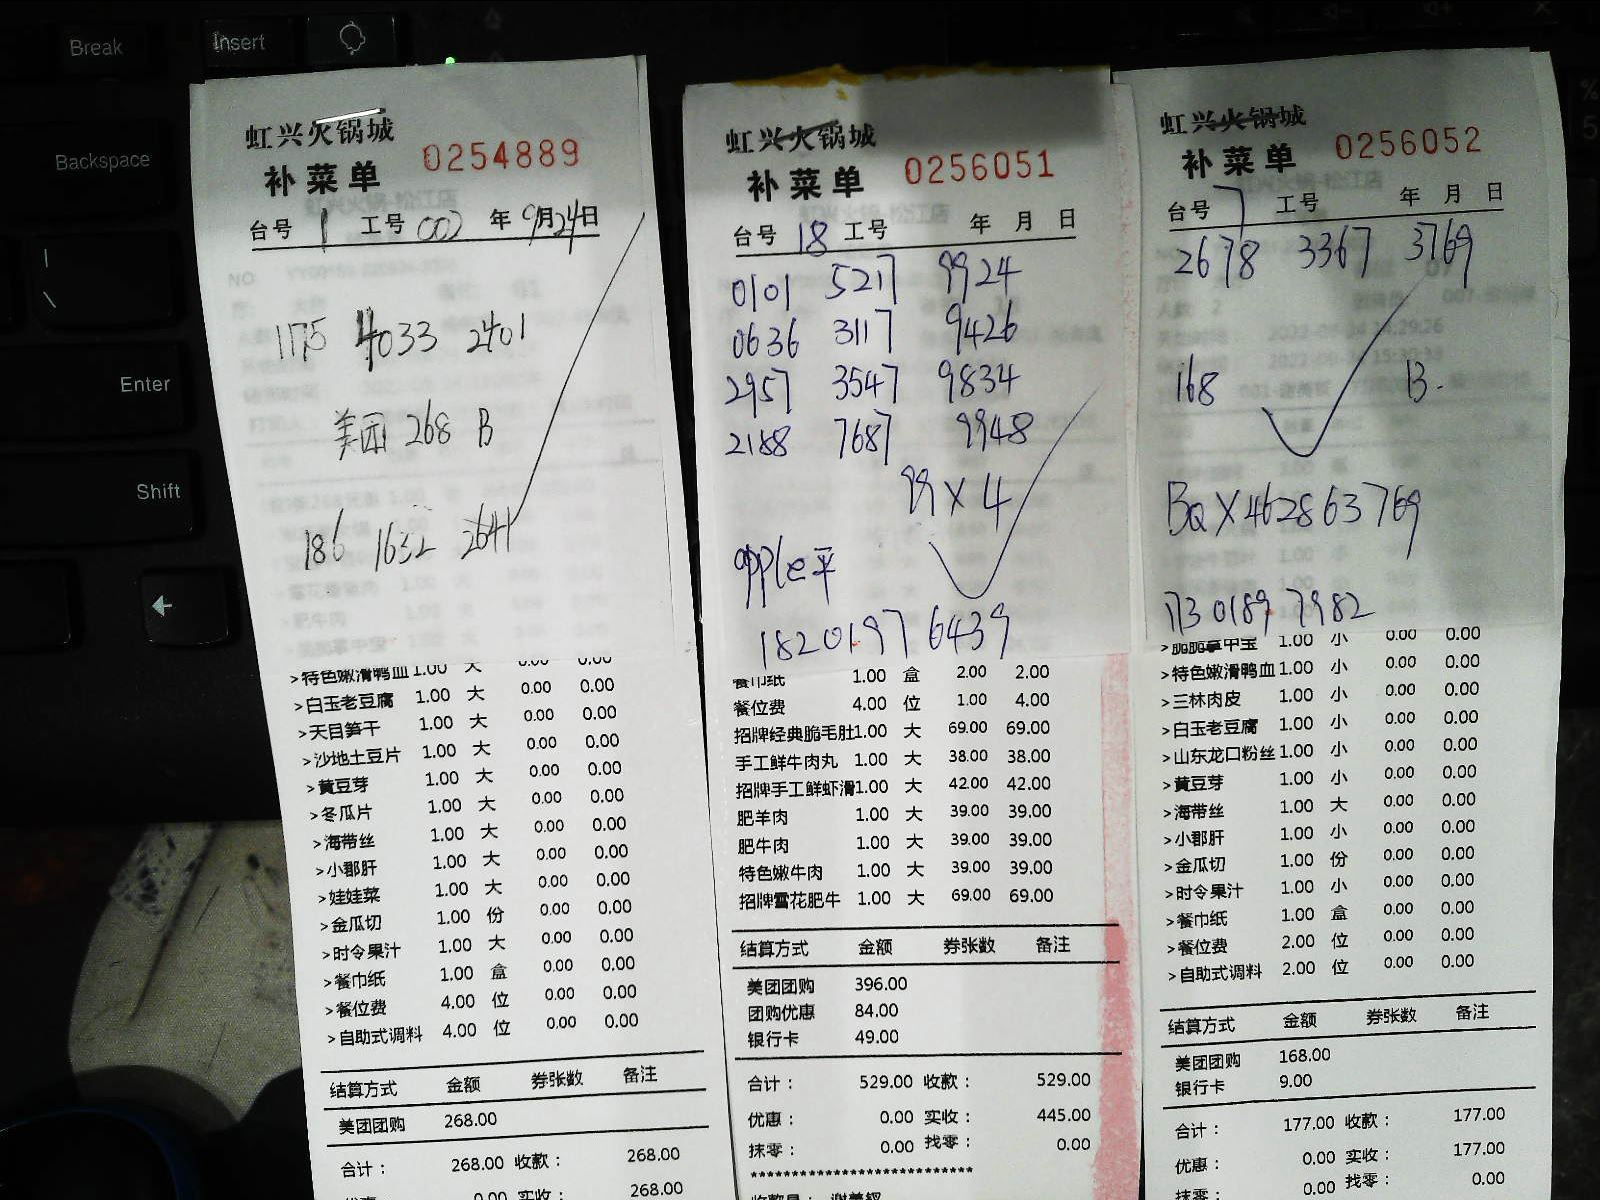 Break
Insert
Backspace
Enter
Shift
虹兴火锅城
补菜单 0254889
台号 1 工号 002 年 9月24日
1175 4033 2401
美团 268 B
186 1632 2641
>特色嫩滑鸭血 1.00 大 0.00 0.00
>白玉老豆腐 1.00 大 0.00 0.00
>天目笋干 1.00 大 0.00 0.00
>沙地土豆片 1.00 大 0.00 0.00
>黄豆芽 1.00 大 0.00 0.00
>冬瓜片 1.00 大 0.00 0.00
>海带丝 1.00 大 0.00 0.00
>小郡肝 1.00 大 0.00 0.00
>娃娃菜 1.00 大 0.00 0.00
>金瓜切 1.00 份 0.00 0.00
>时令果汁 1.00 大 0.00 0.00
>餐巾纸 1.00 盒 0.00 0.00
>餐位费 4.00 位 0.00 0.00
>自助式调料 4.00 位 0.00 0.00
结算方式 金额 券张数 备注
美团团购 268.00
合计: 268.00 收款: 268.00
0.00 实收: 268.00
虹兴火锅城
补菜单 0256051
台号 18 工号 年 月 日
0101 5217 9924
0636 3117 9426
2957 3547 9834
2188 7687 9948
99×4
apple平
182 0197 6439
餐巾纸 1.00 盒 2.00 2.00
餐位费 4.00 位 1.00 4.00
招牌经典脆毛肚1.00 大 69.00 69.00
手工鲜牛肉丸 1.00 大 38.00 38.00
招牌手工鲜虾滑1.00 大 42.00 42.00
肥羊肉 1.00 大 39.00 39.00
肥牛肉 1.00 大 39.00 39.00
特色嫩牛肉 1.00 大 39.00 39.00
招牌雪花肥牛 1.00 大 69.00 69.00
结算方式 金额 券张数 备注
美团团购 396.00
团购优惠 84.00
银行卡 49.00
合计: 529.00 收款: 529.00
优惠: 0.00 实收: 445.00
抹零: 0.00 找零: 0.00
****************************
虹兴火锅城
补菜单 0256052
台号 7 工号 年 月 日
2678 3367 3769
168 B.
BQX462863769
173 0189 7982
>脆脆掌中宝 1.00 小 0.00 0.00
>特色嫩滑鸭血 1.00 小 0.00 0.00
>三林肉皮 1.00 小 0.00 0.00
>白玉老豆腐 1.00 小 0.00 0.00
>山东龙口粉丝 1.00 小 0.00 0.00
>黄豆芽 1.00 小 0.00 0.00
>海带丝 1.00 大 0.00 0.00
>小郡肝 1.00 小 0.00 0.00
>金瓜切 1.00 份 0.00 0.00
>时令果汁 1.00 小 0.00 0.00
>餐巾纸 1.00 盒 0.00 0.00
>餐位费 2.00 位 0.00 0.00
>自助式调料 2.00 位 0.00 0.00
结算方式 金额 券张数 备注
美团团购 168.00
银行卡 9.00
合计: 177.00 收款: 177.00
优惠: 0.00 实收: 177.00
抹零: 0.00 找零: 0.00